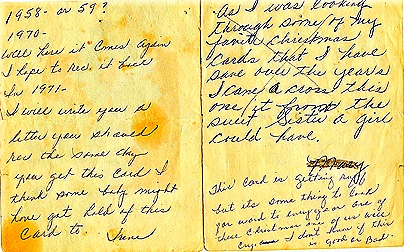 1958- or 59?
1970-
Well here it Comes Again
I hope to rec. it back
In 1971-
I will write you a
letter you should
rec the same day
you get this Card I
think some baby might
have got hold of this
Card to. Irene
As I was looking
through some of my
favorite Christmas
Cards that I have
save over the years
I came a cross this
one it from the
sweet Sister a girl
could have.
This card is getting ruff
but its some thing to look
for ward to every year one of
these Christmas one of us will
cry. I don't know if this
is Good or Bad.